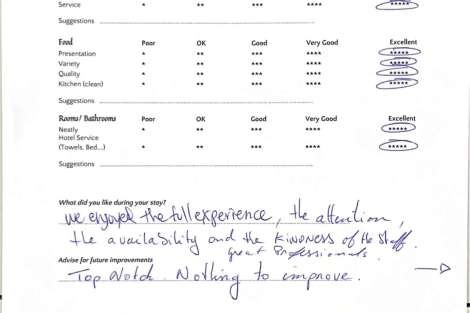 Service * ** *** **** *****
Suggestions
Food Poor OK Good Very Good Excellent
Presentation * ** *** **** *****
Variety * ** *** **** *****
Quality * ** *** **** *****
Kitchen (clean) * ** *** **** *****
Suggestions
Rooms/ Bathrooms Poor OK Good Very Good Excellent
Neatly * ** *** **** *****
Hotel Service
(Towels, Bed...) * ** *** **** *****
Suggestions
What did you like during your stay?
we enjoyed the full experience, the attention,
the availability and the KINDNESS of the Staff.
great Professionals.
Advise for future improvements
Top Notch. Nothing to improve.